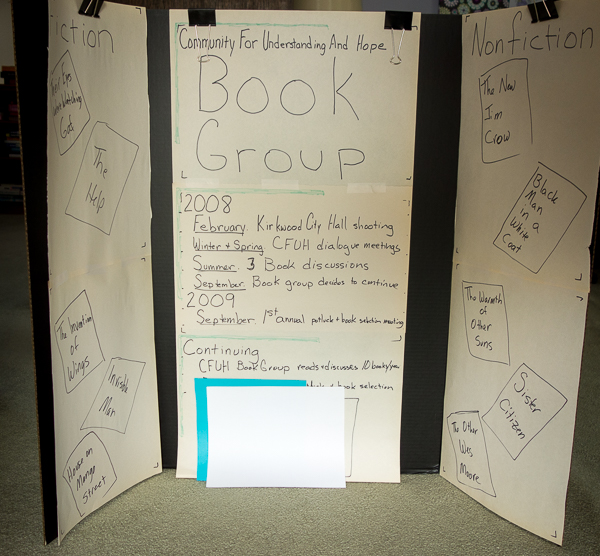 Fiction
Their Eyes
Were Watching
God
The
Help
The Invention
of
Wings
Invisible
Man
House on
Mango
Street
Community For Understanding And Hope
Book
Group
2008
February. Kirkwood City Hall shooting
Winter + Spring. CFUH dialogue meetings
Summer. 3 Book discussions
September. Book group decides to continue
2009
September. 1st annual potluck + book selection meeting
Continuing
CFUH Book Group reads + discusses 10 books/year
+ book selection
Nonfiction
The New
Jim
Crow
Black
Man
in a
White
Coat
The Warmth
of
Other
Suns
Sister
Citizen
The Other
Wes
Moore